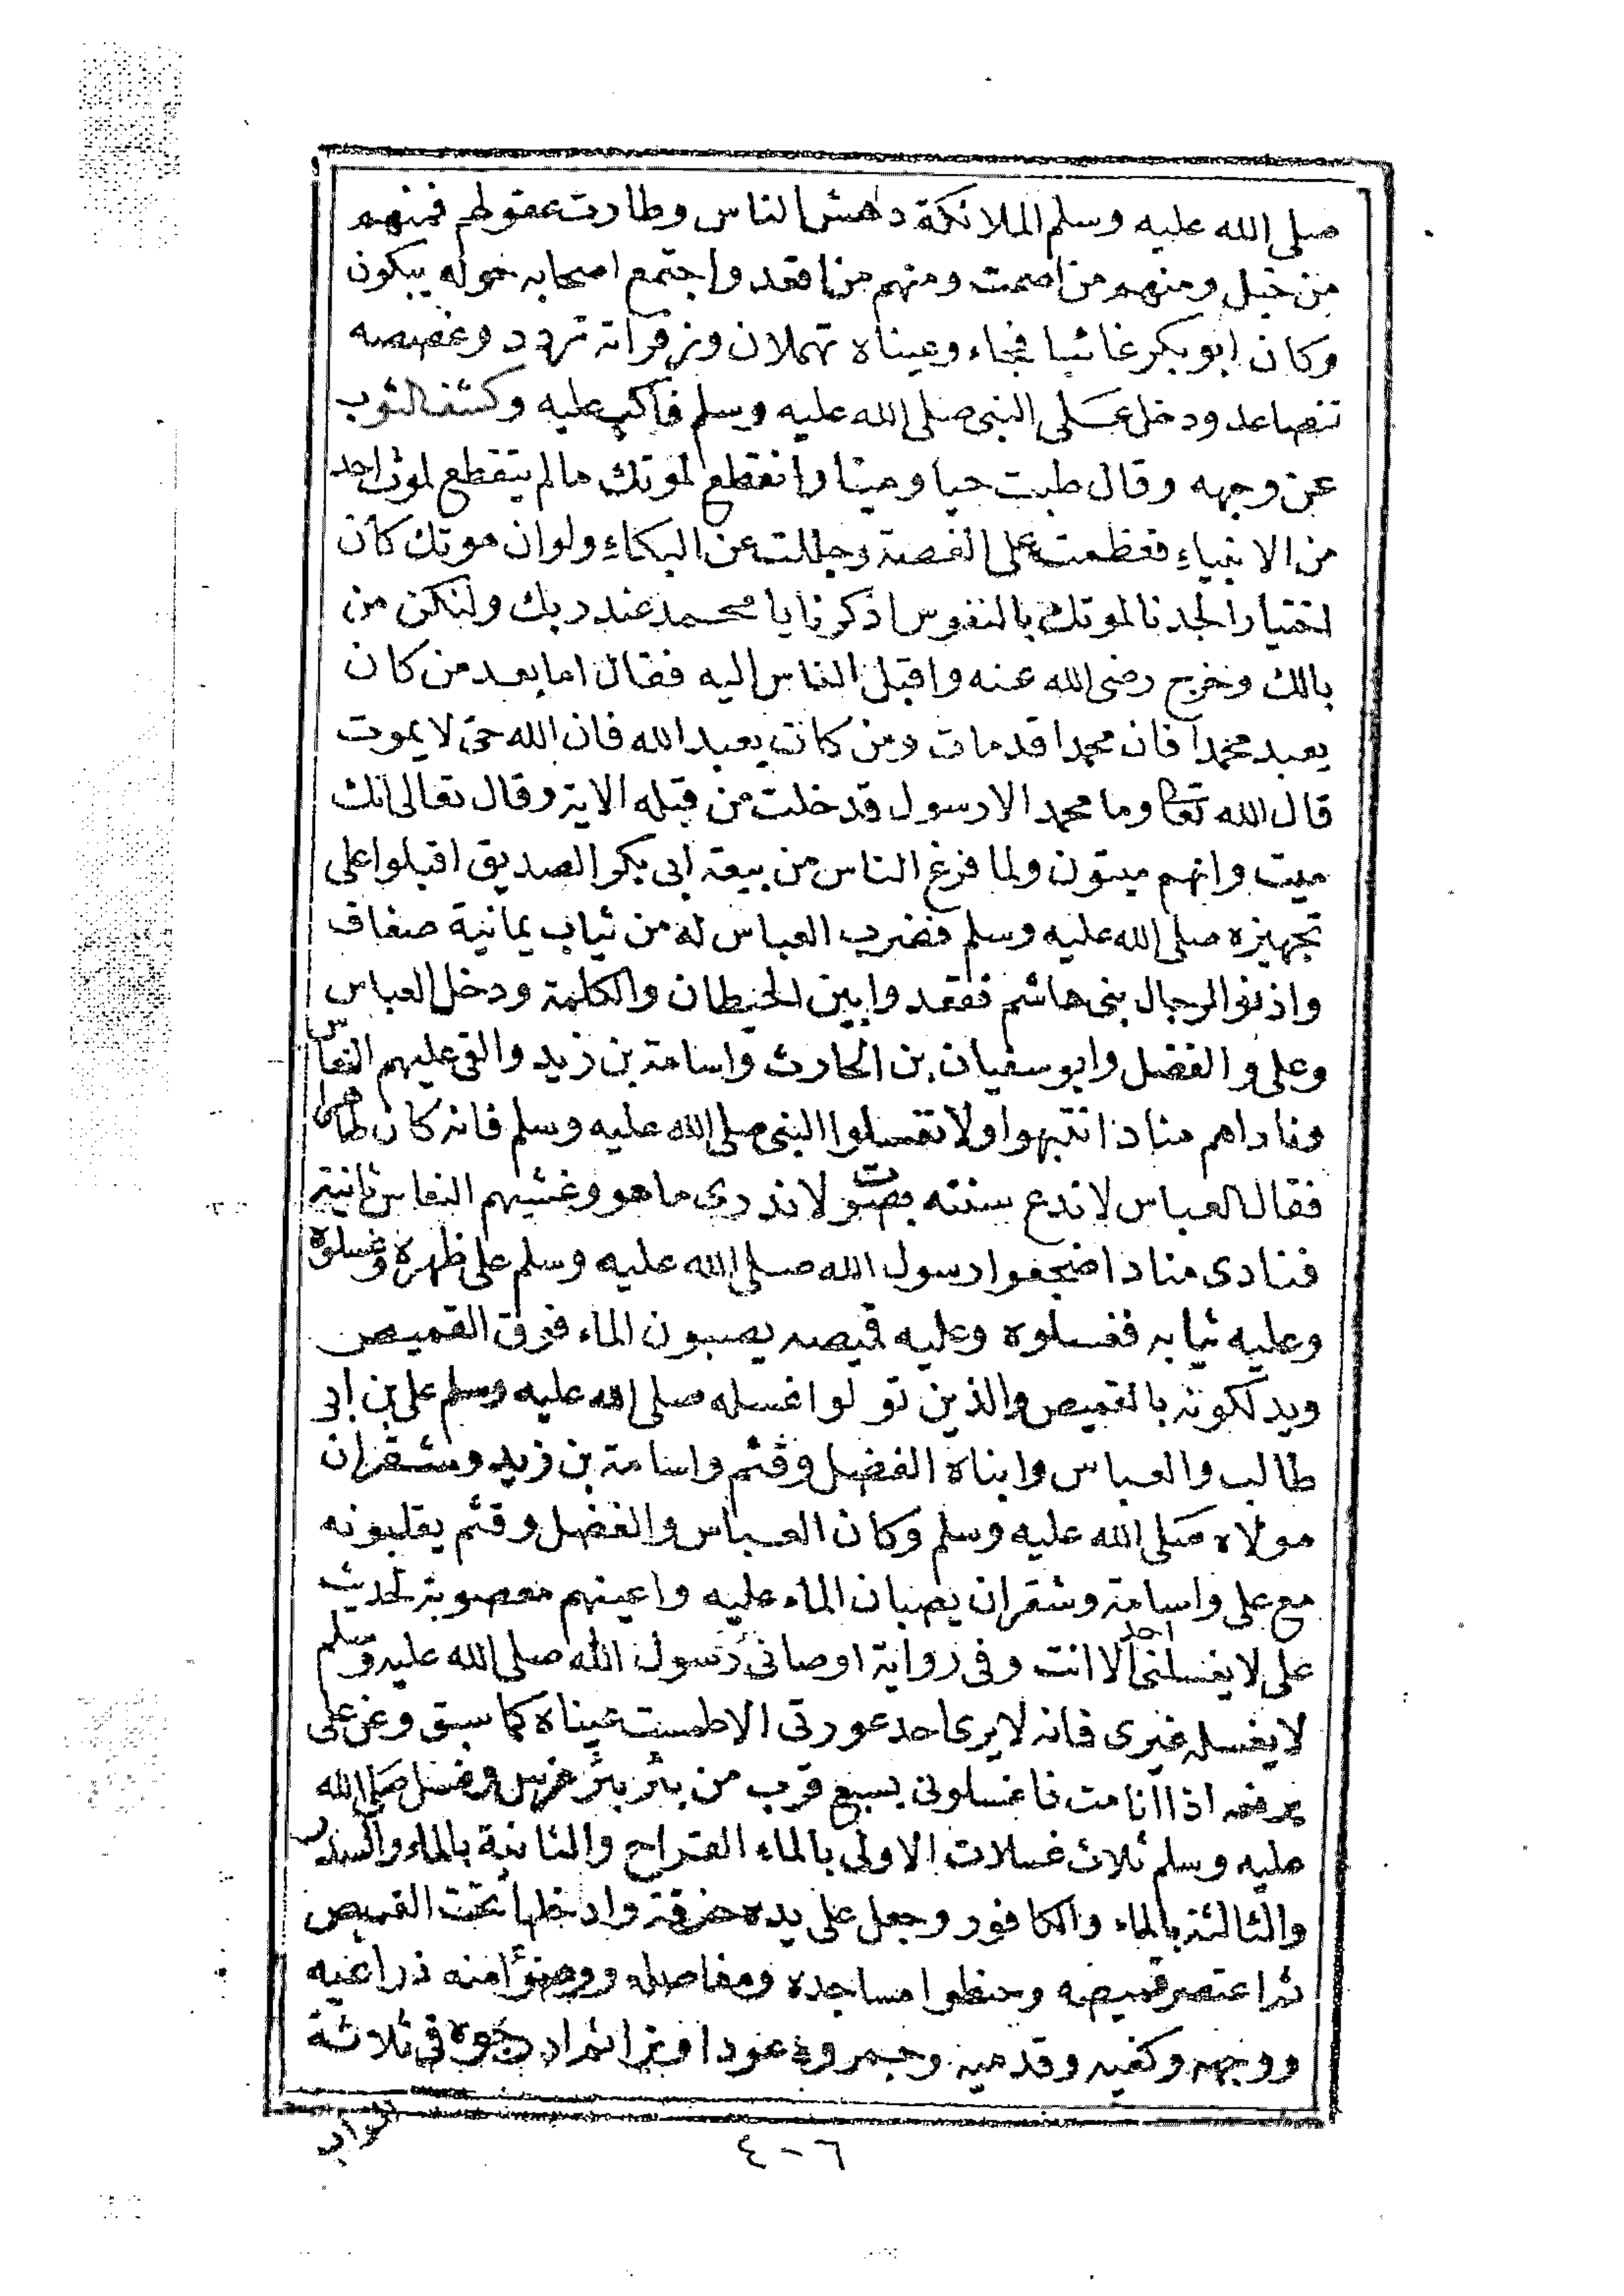 صلى الله عليه وسلم الملائكة دهش الناس وطارت عقولهم فمنهم
من خبل ومنهم من اصمت ومنهم من اقعد واجتمع اصحابه حوله يبكون
وكان ابو بكر غائبا فجاء وعيناه تهملان وزفراته تردد وغصصه
تتصاعد ودخل على النبى صلى الله عليه وسلم فاكب عليه وكشف الثوب
عن وجهه وقال طبت حيا وميتا وانقطع لموتك مالم ينقطع لموت احد
من الانبياء فعظمت على الغصة وجللت عن البكاء ولوان موتك كان
اختيارا لجدنا لموتك بالنفوس اذكرنا يا محمد عند ربك ولنكن من
بالك وخرج رضى الله عنه واقبل الناس اليه فقال اما بعد من كان
يعبد محمدا فان محمدا قد مات ومن كان يعبد الله فان الله حى لا يموت
قال الله تعا وما محمد الا رسول قد خلت من قبله الاية وقال تعالى انك
ميت وانهم ميتون ولما فرغ الناس من بيعة ابى بكر الصديق اقبلوا على
تجهيزه صلى الله عليه وسلم فضرب العباس له من ثياب يمانية صفاف
واذنوا لرجال بنى هاشم فقعدوا بين الحيطان والكلمة ودخل العباس
وعلى والفضل وابو سفيان بن الحارث واسامة بن زيد والقى عليهم النعاس
وناداهم مناد انتبهوا ولا تغسلوا النبى صلى الله عليه وسلم فانه كان طاهرا
فقال العباس لا ندع سنته بصوت لا ندرى ما هو وغشيهم النعاس ثانية
فنادى مناد اضجعوا رسول الله صلى الله عليه وسلم على ظهره وغسلوه
وعليه ثيابه فغسلوه وعليه قميصه يصبون الماء فوق القميص
ويدلكونه بالقميص والذين تولوا غسله صلى الله عليه وسلم على بن ابى
طالب والعباس وابناه الفضل وقثم واسامة بن زيد وشقران
مولاه صلى الله عليه وسلم وكان العباس والفضل وقثم يقلبونه
مع على واسامة وشقران يصبان الماء عليه واعينهم معصوبة لحديث
على لا يغسلنى احد الا انت وفى رواية اوصانى رسول الله صلى الله عليه وسلم
لا يغسله غيرى فانه لا يرى احد عورتى الا طمست عيناه كما سبق وعن على
يرفعه اذا انا مت فاغسلونى بسبع قرب من بئر بئر غرس وغسل صلى الله
عليه وسلم ثلاث غسلات الاولى بالماء القراح والثانية بالماء والسدر
والثالثة بالماء والكافور وجعل على يده خرقة وادخلها تحت القميص
ثم اعتصر قميصه وحنطوا مساجده ومفاصله ووضؤا منه ذراعيه
ووجهه وكفيه وقدميه وجمروه عودا وندا ثم ادرجوه فى ثلاثة
اثواب
٤-٦